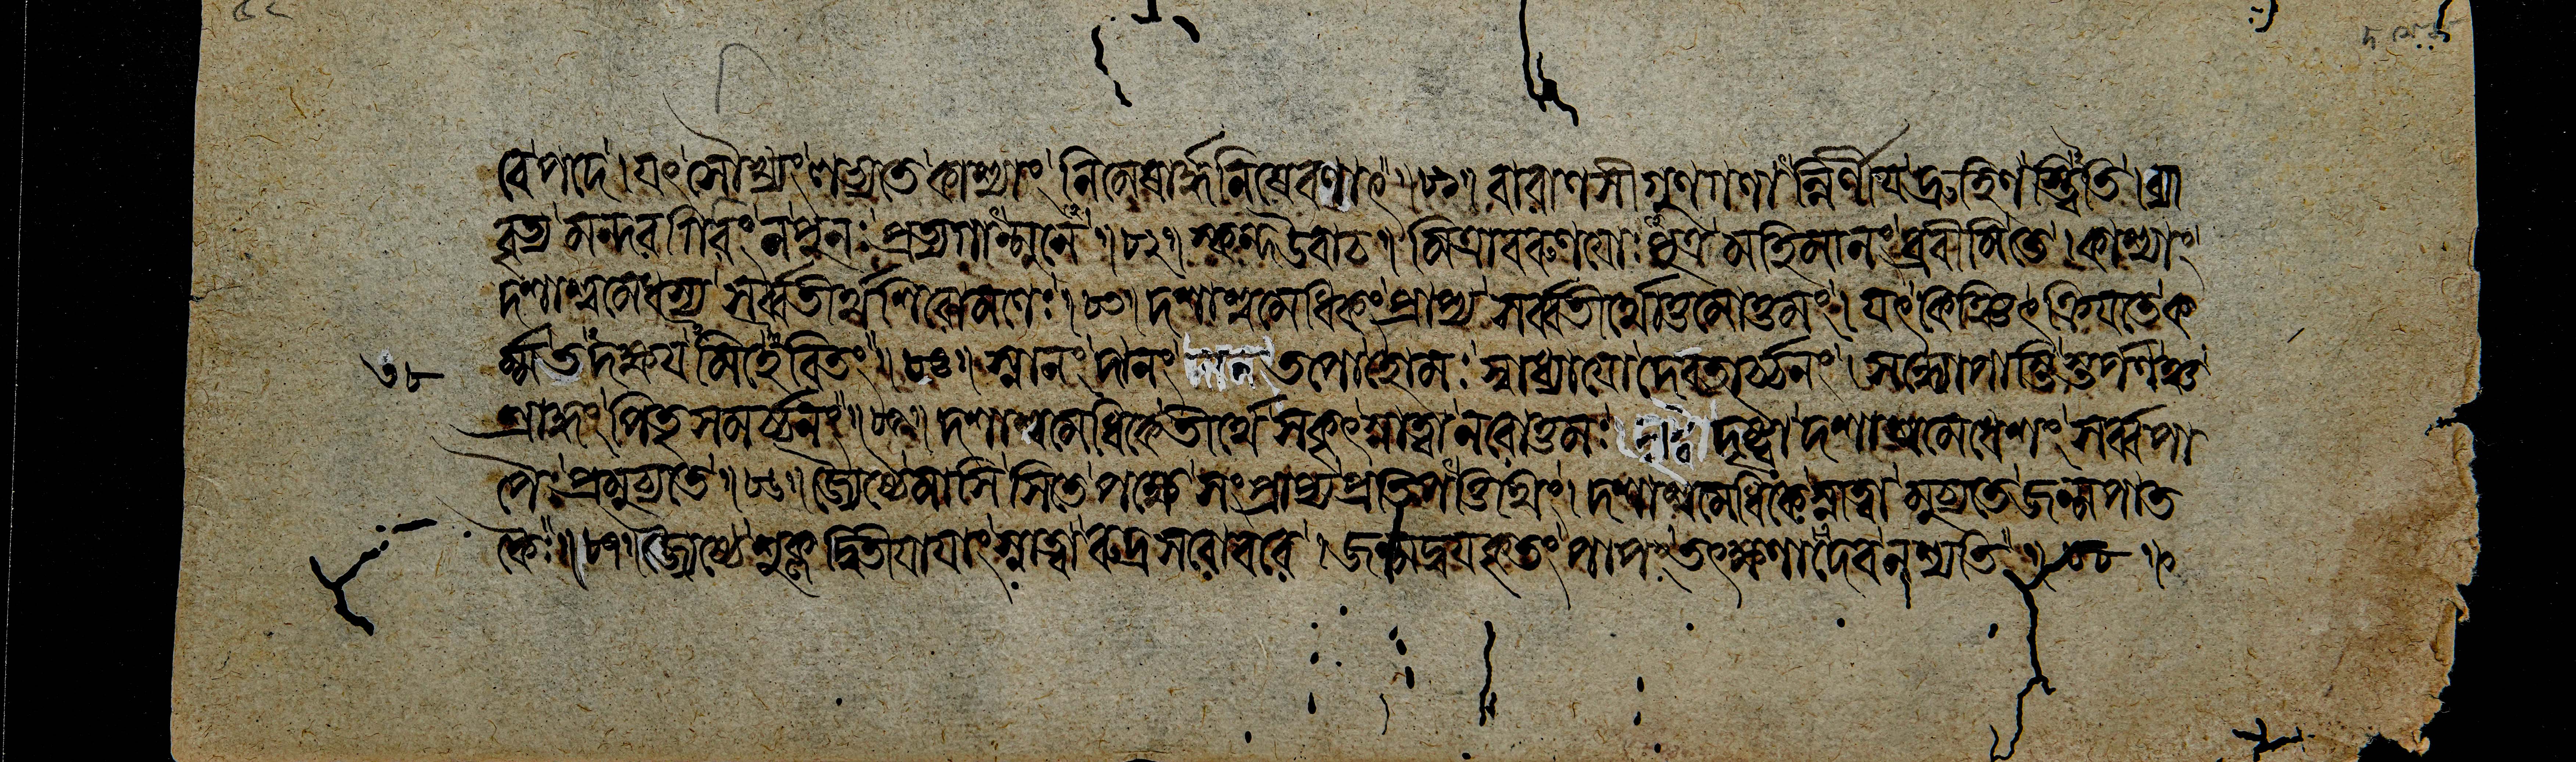 বে পদে। যৎ সৌখ্যং লভ্যতে কাশ্যাং নিমেষার্দ্ধনিষেবণাৎ॥৮১॥ বারাণসীগুণগণান্নির্ণীয় দ্রুহিণস্ত্বিতি। ব্যা
বৃত্য মন্দরগিরিং ন পুনঃ প্রত্যগান্মুনে॥৮২॥ স্কন্দ উবাচ॥ মিত্রাবরুণয়োঃ পুত্র মহিমানং ব্রবীমি তে। কাশ্যাং
দশাশ্বমেধস্য সর্ব্বতীর্থশিরোমণেঃ॥৮৩॥ দশাশ্বমেধিকং প্রাপ্য সর্ব্বতীর্থোত্তমোত্তমং। যৎ কিঞ্চিৎ ক্রিয়তে ক
র্ম্ম তদক্ষয়মিহেরিতং॥৮৪॥ স্নানং দানং তপো হোমঃ স্বাধ্যায়ো দেবতার্চ্চনং। সন্ধ্যোপাস্তিস্তর্পণঞ্চ
৩৮
শ্রাদ্ধং পিতৃসমর্চ্চনং॥৮৫॥ দশাশ্বমেধিকে তীর্থে সকৃৎ স্নাত্বা নরোত্তমঃ। দৃষ্ট্বা দশাশ্বমেধেশং সর্ব্বপা
পৈঃ প্রমুচ্যতে॥৮৬॥ জ্যৈষ্ঠে মাসি সিতে পক্ষে সংপ্রাপ্য প্রতিপত্তিথিং। দশাশ্বমেধিকে স্নাত্বা মুচ্যতে জন্মপাত
কৈঃ॥৮৭॥ জ্যৈষ্ঠে শুক্লদ্বিতীয়ায়াং স্নাত্বা রুদ্রসরোবরে। জন্মদ্বয়কৃতং পাপং তৎক্ষণাদেব নশ্যতি॥৮৮॥